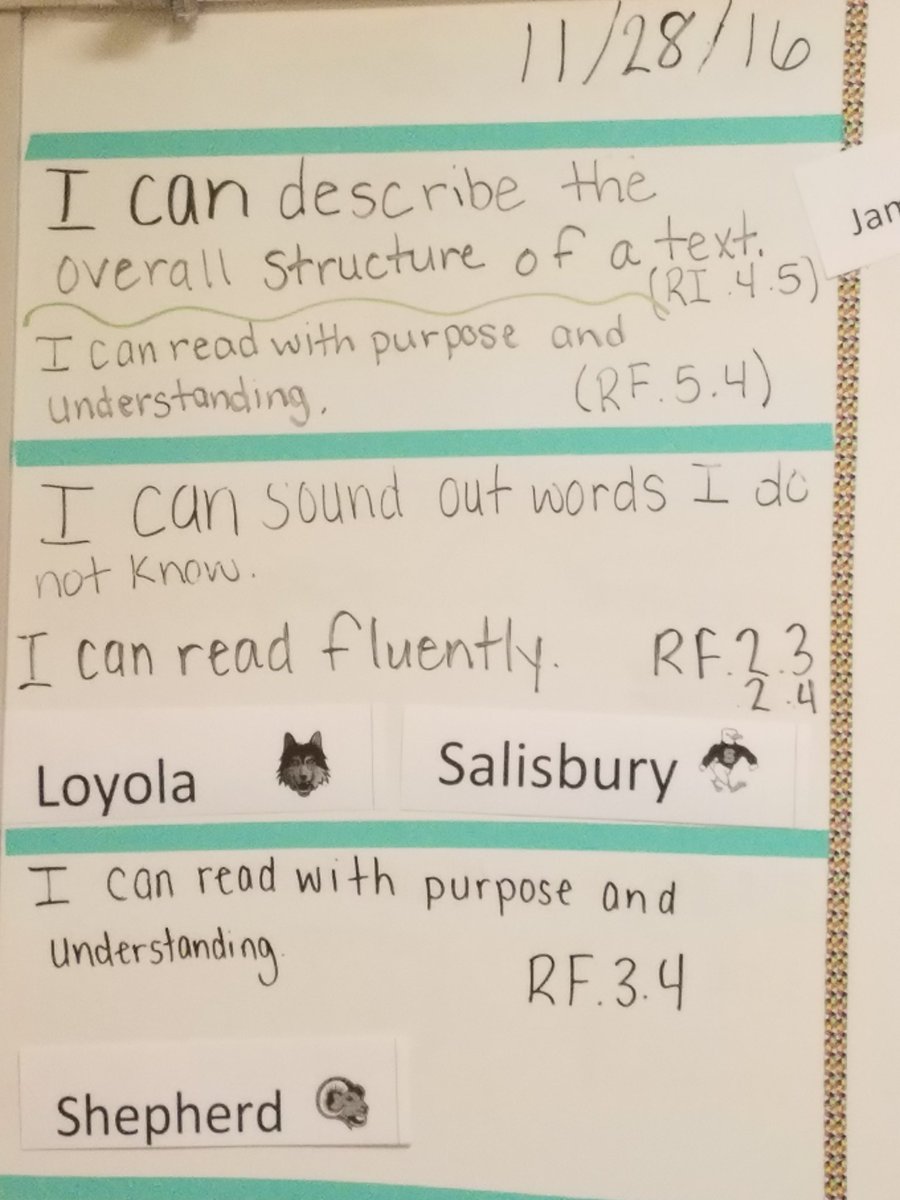 11/28/16
I can describe the
overall structure of a text.
(RI.4.5)
I can read with purpose and
understanding.
(RF.5.4)
I can sound out words I do
not know.
I can read fluently. RF.2.3
2.4
Loyola
Salisbury
I can read with purpose and
understanding.
RF.3.4
Shepherd